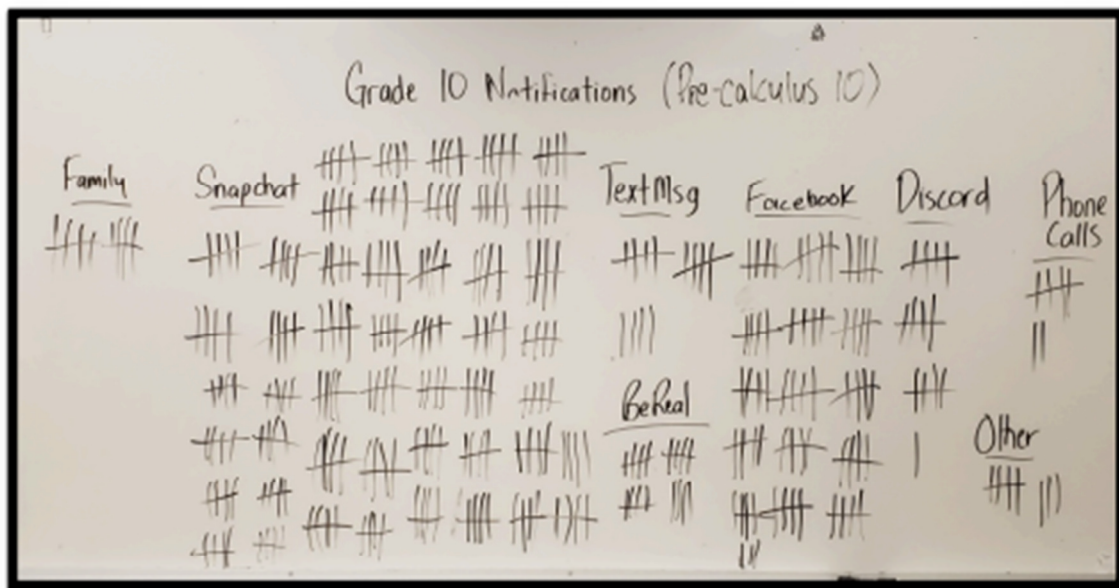 Grade 10 Notifications (Pre-calculus 10)
Family
Snapchat
Text Msg
Facebook
Discord
Phone
Calls
BeReal
Other